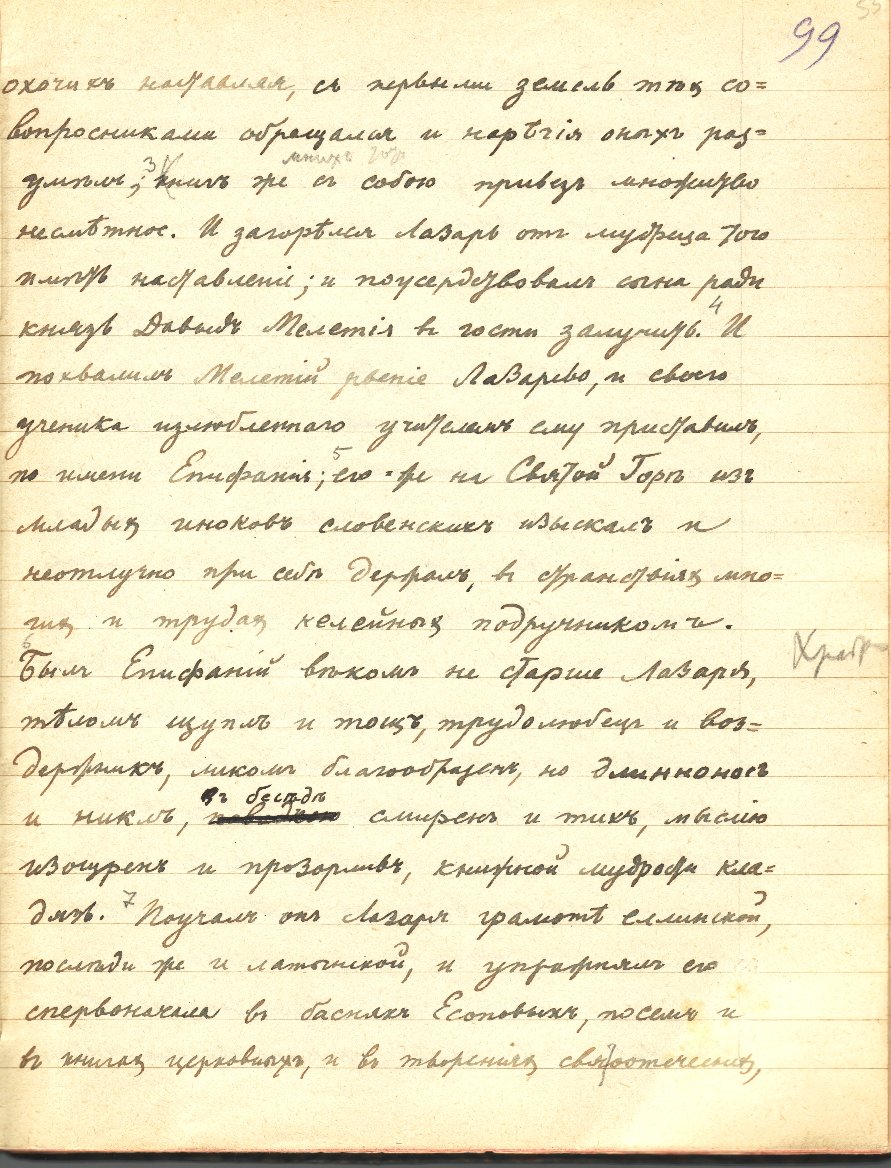 99
охочихъ наставляя, съ первыми земель тѣхъ со=
вопросниками обращался и нарѣчія оныхъ раз=
умѣлъ; ³ книгъ же съ собою привезъ множество
несмѣтное. И загорѣлся Лазарь отъ мудреца того
имѣть наставленіе; и поусердствовалъ сына ради
князь Давыдъ Мелетія въ гости залучить. ⁴ И
похвалилъ Мелетій рвеніе Лазарево, и своего
ученика излюбленнаго учителемъ ему приставилъ,
по имени Епифанія; ⁵ его=же на Святой Горѣ изъ
младыхъ иноковъ словенскихъ изыскалъ и
неотлучно при себѣ держалъ, въ странствіяхъ мно=
гихъ и трудахъ келейныхъ подручникомъ.
⁶ Былъ Епифаній вѣкомъ не старше Лазаря,
тѣломъ щуплъ и тощъ, трудолюбецъ и воз=
держникъ, ликомъ благообразенъ, но длинноносъ
въ бесѣдѣ
и никлъ, смиренъ и тихъ, мыслію
изощренъ и прозорливъ, книжной мудрости кла=
дязь. ⁷ Поучалъ онъ Лазаря грамотѣ еллинской,
послѣди же и латынской, и упражнялъ его
спервоначала въ басняхъ Есоповыхъ, посемъ и
въ книгахъ церковныхъ, и въ твореніяхъ святоотеческихъ,